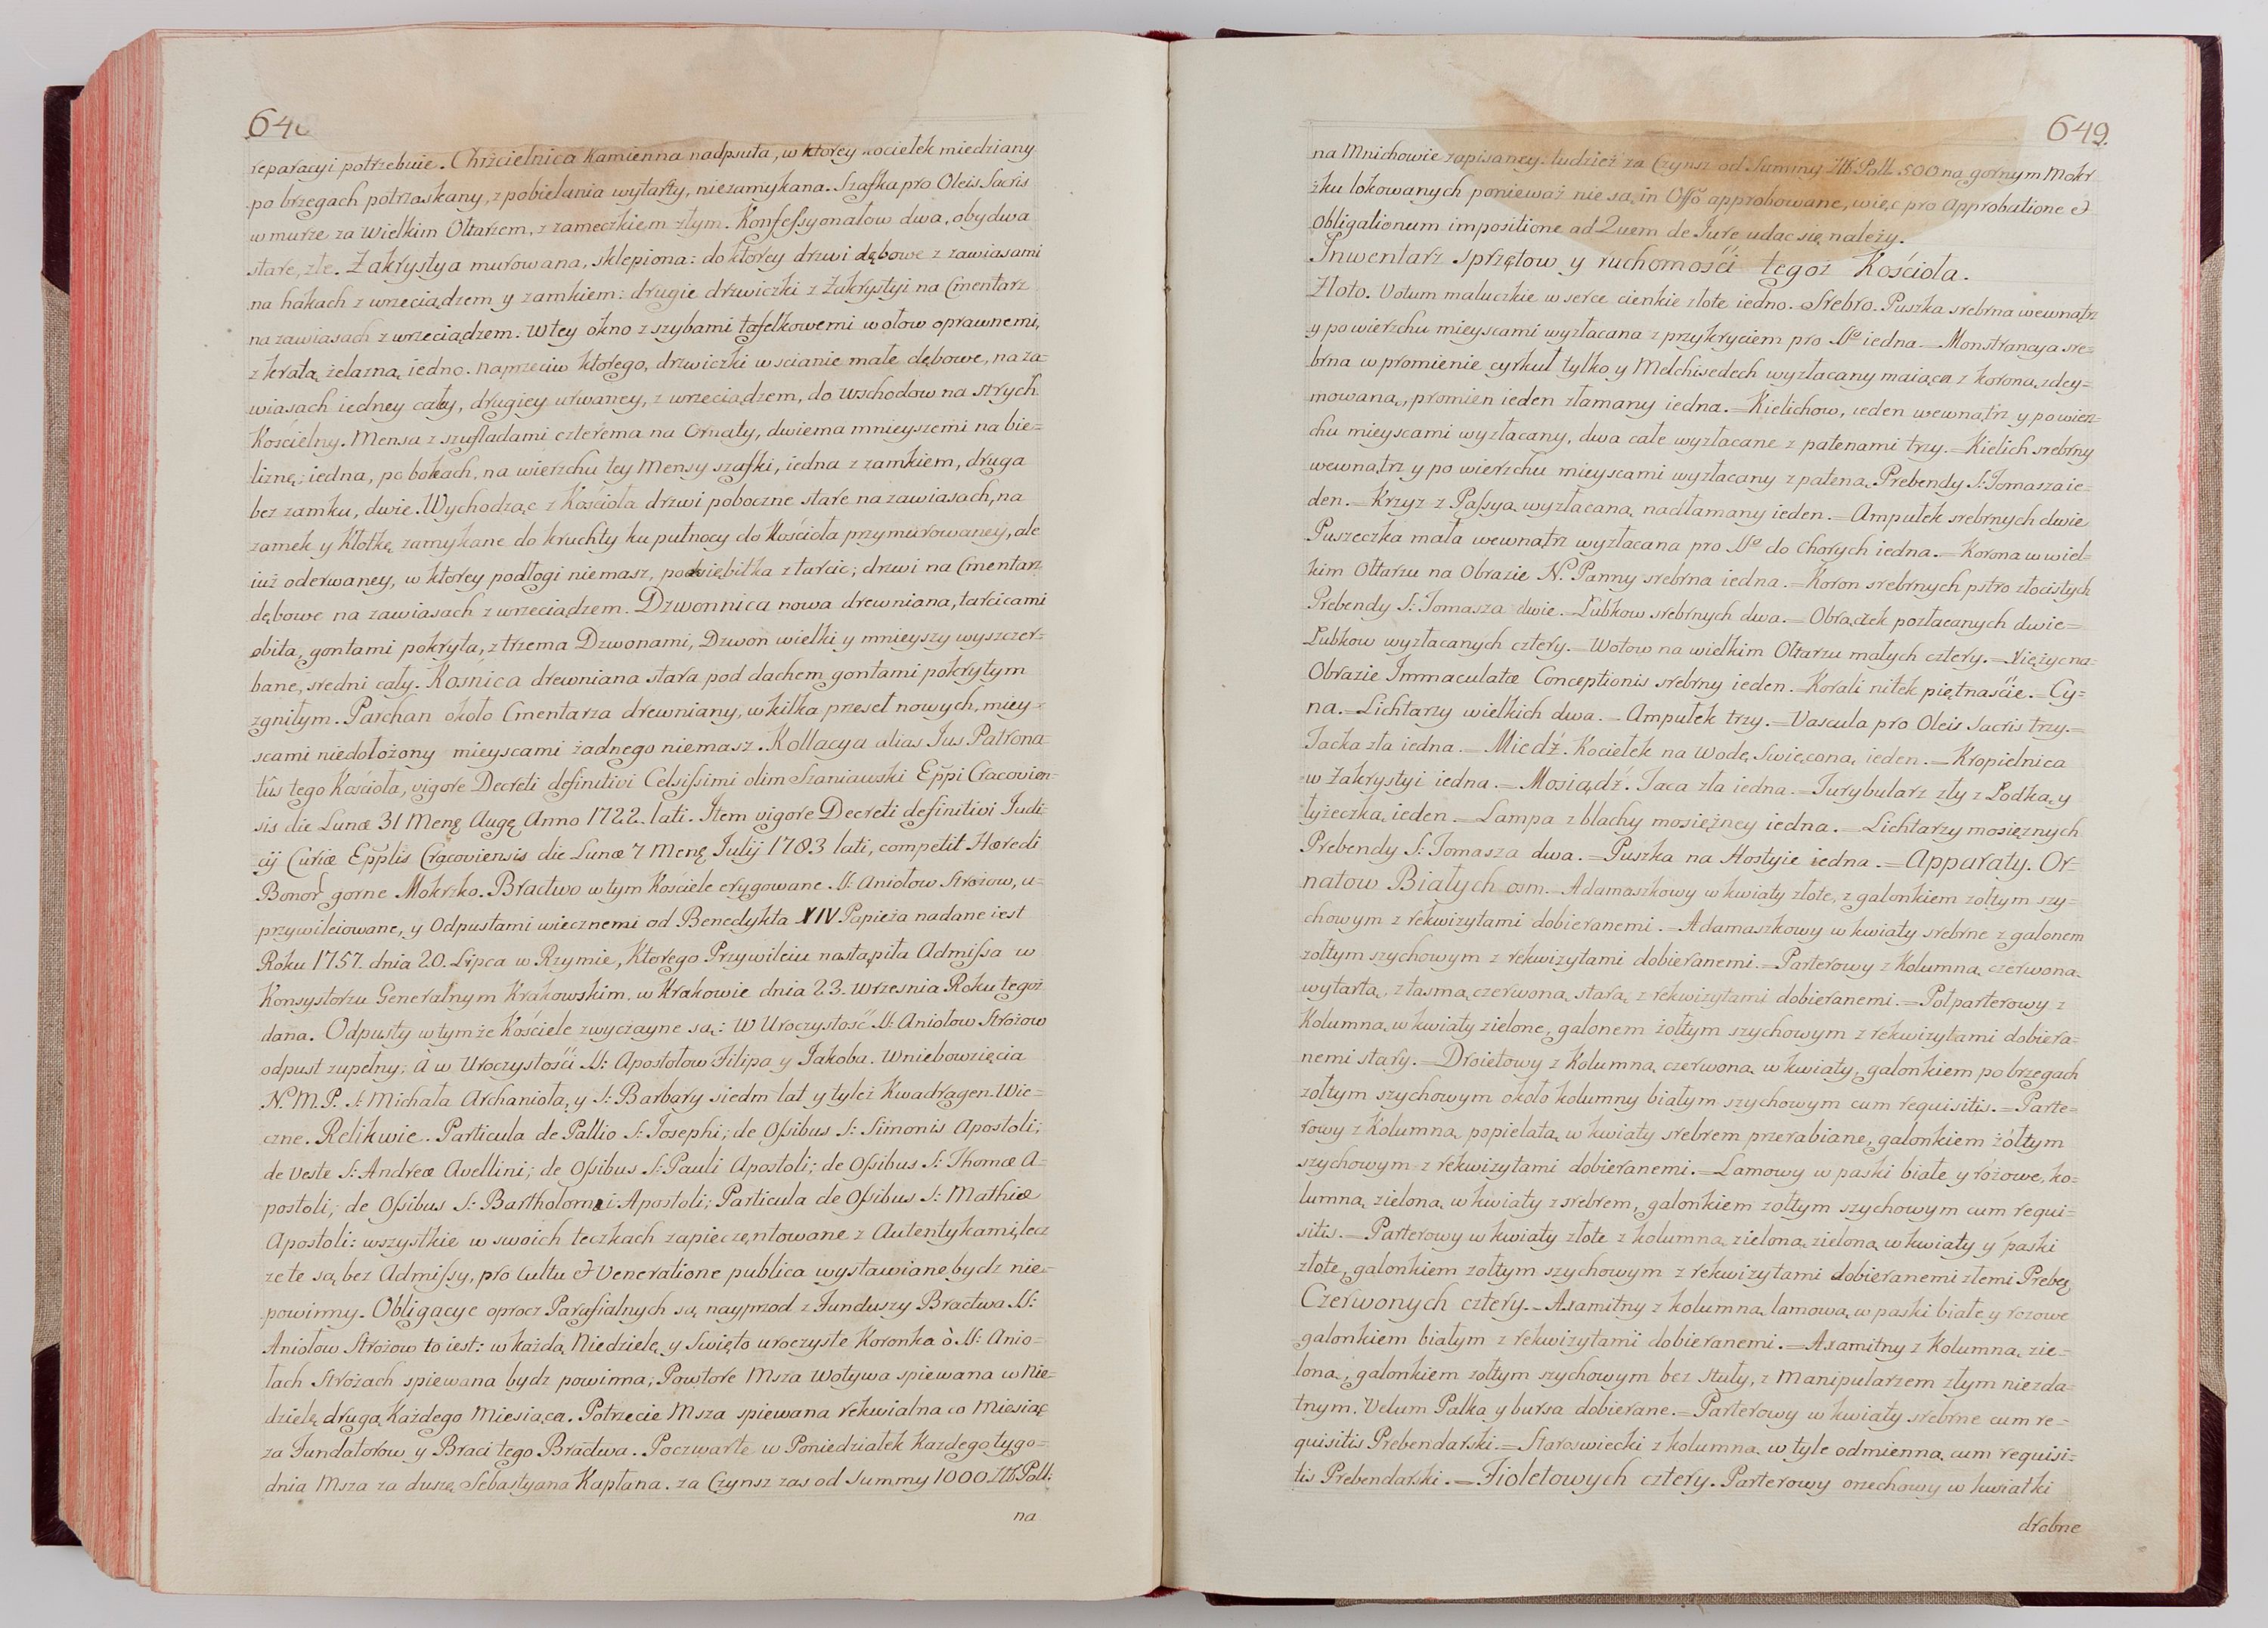 64
reparacyi potrzebuie. Chrzcielnica Kamienna nadpsuta, w ktorey kociełek miedziany
po brzegach potrzaskany, z pobielania wytarty, niezamykana. Szafka pro Oleis Sacris
w murze za Wielkim Ołtarzem, z zameczkiem złym. Konfessyonałow dwa, obydwa
stare, złe. Zakrystya murowana, sklepiona: do ktorey drzwi dębowe z zawiasami
na hakach z wrzeciądzem y zamkiem: drugie drzwiczki z Zakrystyi na Cmentarz
na zawiasach z wrzeciądzem. W tey okno z szybami tafelkowemi w ołow oprawnemi,
z kratą żelazną iedno. naprzeciw ktorego, drzwiczki w scianie małe dębowe, na za-
wiasach iedney cały, drugiey urwaney, z wrzeciądzem, do Wschodow na strych
Kościelny. Mensa z szufladami czterema na Ornaty, dwiema mnieyszemi na bie-
liznę; iedna, po bokach, na wierzchu tey Mensy szafki, iedna z zamkiem, druga
bez zamku, dwie. Wychodząc z Kościoła drzwi poboczne stare na zawiasach, na
zamek y Kłotkę zamykane do kruchty ku pułnocy do Kościoła przymurowaney, ale
iuż oderwaney, w ktorey podłogi niemasz, podsiębitka z tarcic; drzwi na Cmentarz
dębowe na zawiasach z wrzeciądzem. Dzwonnica nowa drewniana, tarcicami
obita, gontami pokryta, z trzema Dzwonami, Dzwon wielki y mnieyszy wyszczer-
bane, sredni cały. Kośnica drewniana stara pod dachem gontami pokrytym
zgniłym. Parchan około Cmentarza drewniany, w kilka przeseł nowych, miey-
scami niedołożony mieyscami żadnego niemasz. Kollacya alias Jus Patrona-
tûs tego Kościoła, vigore Decreti definitivi Celsissimi olim Szaniawski Eppi Cracovien-
sis die Lunæ 31 Menę Augę Anno 1722. lati. Item vigore Decreti definitivi Judi-
cij Curiæ Epplis Cracoviensis die Lunæ 7 Menę Julij 1783 lati, competit Hæredi
Bonor gorne Mokrzko. Bractwo w tym Kościele erygowane SS: Aniołow Strożow, u-
przywileiowane, y Odpustami wiecznemi od Benedykta XIV Papieża nadane iest
Roku 1757. dnia 20. Lipca w Rzymie, Ktorego Przywileiu nastąpiła Admissa w
Konsystorzu Generalnym Krakowskim. w Krakowie dnia 23. Wrzesnia Roku tegoż
dana. Odpusty w tymże Kościele zwyczayne są: W Uroczystość SS: Aniołow Strożow
odpust zupełny; à w Uroczystości SS: Apostołow Filipa y Jakoba. Wniebowzięcia
N. M. P. S: Michała Archanioła, y S: Barbary siedm lat y tyleż Kwadragen. Wie-
czne. Relikwie. Particula de Pallio S: Josephi; de Ossibus S: Simonis Apostoli;
de Veste S: Andreæ Avellini; de Ossibus S: Pauli Apostoli; de Ossibus S: Thomæ A-
postoli; de Ossibus S: Bartholomæi Apostoli; Particula de Ossibus S: Mathiæ
Apostoli: wszystkie w swoich teczkach zapieczętowane z Autentykami, lecz
ze te są bez Admissy, pro Cultu & Veneratione publica wystawiane bydz nie-
powinny. Obligacye oprocz Parafialnych są nayprzod z Funduszy Bractwa SS:
Aniołow Strożow to iest: w każdą Niedzielę y Swięto uroczyste Koronka ò SS: Anio-
łach Strożach spiewana bydz powinna; Powtore Msza Wotywa spiewana w Nie-
dzielę drugą Każdego Miesiąca. Potrzecie Msza spiewana rekwialna co Miesiąc
za Fundatorow y Braci tego Bractwa. Poczwarte w Poniedziałek Kazdego tygo-
dnia Msza za duszę Sebastyana Kapłana. za Czynsz zas od Summy 1000 Złt Poll:
na
649.
na Mnichowie zapisaney. tudzież za Czynsz od Summy Złt. Poll. 500 na gornym Mokr
żku lokowanych ponieważ nie są in Offo approbowane, więc pro Approbatione &
Obligationum impositione ad Quem de Jure udac się należy.
Inwentarz sprzętow y ruchomości tegoż Kościoła.
Złoto. Votum maluczkie w serce cienkie złote iedno. Srebro. Puszka srebrna wewnątrz
y po wierzchu mieyscami wyzłacana z przykryciem pro SSo iedna. = Monstrancya sre-
brna w promienie cyrkuł tylko y Melchisedech wyzłacany maiąca z koroną zdey-
mowaną, promien ieden złamany iedna. = Kielichow, ieden wewnątrz y po wierz-
chu mieyscami wyzłacany, dwa całe wyzłacane z patenami trzy. = Kielich srebrny
wewnątrz y po wierzchu mieyscami wyzłacany z pateną Prebendy S: Tomasza ie-
den. = Krzyz z Passyą wyzłacaną nadłamany ieden. = Ampułek srebrnych dwie
Puszeczka mała wewnątrz wyzłacana pro SSo do Chorych iedna. = Korona w wiel-
kim Ołtarzu na Obrazie N. Panny srebrna iedna. = Koron srebrnych pstro złocistych
Prebendy S: Tomasza dwie. = Łubkow srebrnych dwa. = Obrączek pozłacanych dwie =
Łubkow wyzłacanych cztery. = Wotow na wielkim Ołtarzu małych cztery. = Xiężyc na
Obrazie Immaculatæ Conceptionis srebrny ieden. = Korali nitek piętnaście. = Cy-
na. = Lichtarzy wielkich dwa. = Ampułek trzy. = Vascula pro Oleis Sacris trzy. =
Tacka zła iedna. = Miedź. Kociełek na Wodę Swięconą ieden. = Kropielnica
w Zakrystyi iedna. = Mosiądź. Taca zła iedna. = Turybularz zły z Łodką y
łyżeczką ieden. = Lampa z blachy mosiężney iedna. = Lichtarzy mosięznych
Prebendy S: Tomasza dwa. = Puszka na Hostyie iedna. = Apparaty. Or-
natow Białych osm. = Adamaszkowy w kwiaty złote, z galonkiem zołtym szy-
chowym z rekwizytami dobieranemi. = Adamaszkowy w kwiaty srebrne z galonem
zołtym szychowym z rekwizytami dobieranemi. = Parterowy z Kolumną czerwoną
wytartą, z tasmą czerwoną starą z rekwizytami dobieranemi. = Połparterowy z
Kolumną w kwiaty zielone, galonem żołtym szychowym z rekwizytami dobiera-
nemi stary. = Droietowy z Kolumną czerwoną w kwiaty, galonkiem po brzegach
zołtym szychowym około kolumny białym szychowym cum requisitis. = Parte-
rowy z Kolumną popielatą w kwiaty srebrem przerabiane, galonkiem żółtym
szychowym z rekwizytami dobieranemi. = Lamowy w paski białe y różowe, ko-
lumną zieloną w kwiaty z srebrem, galonkiem zołtym szychowym cum requi-
sitis. = Parterowy w kwiaty złote z kolumną zieloną zieloną w kwiaty y paski
złote, galonkiem zołtym szychowym z rekwizytami dobieranemi złemi Prebę
Czerwonych cztery. = Axamitny z kolumną lamową w paski białe y rozowe
galonkiem białym z rekwizytami dobieranemi. = Axamitny z Kolumną zie-
loną, galonkiem zołtym szychowym bez Stuły, z Manipularzem złym niezda-
tnym. Velum Palka y bursa dobierane. = Parterowy w kwiaty srebrne cum re-
quisitis Prebendarski. = Staroswiecki z kolumną w tyle odmienną cum requisi-
tis Prebendarski. = Fioletowych cztery. Parterowy orzechowy w kwiatki
drobne